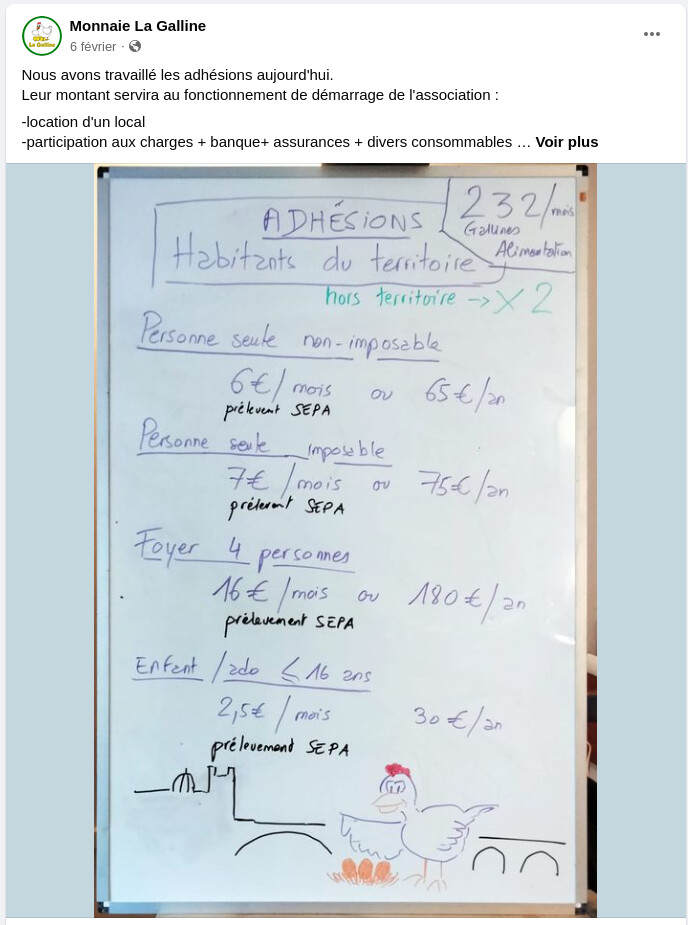 Monnaie La Galline
6 février ·
Nous avons travaillé les adhésions aujourd'hui.
Leur montant servira au fonctionnement de démarrage de l'association :
-location d'un local
-participation aux charges + banque+ assurances + divers consommables … Voir plus
La Galline
232/mois
Gallines
Alimentation
ADHÉSIONS
Habitants du territoire
hors territoire → X 2
Personne seule non-imposable
6€/mois ou 65€/an
prélevent SEPA
Personne seule imposable
7€/mois ou 75€/an
prélevent SEPA
Foyer 4 personnes
16€/mois ou 180€/an
prélevement SEPA
Enfant/ado ≤ 16 ans
2,5€/mois 30€/an
prélevemend SEPA